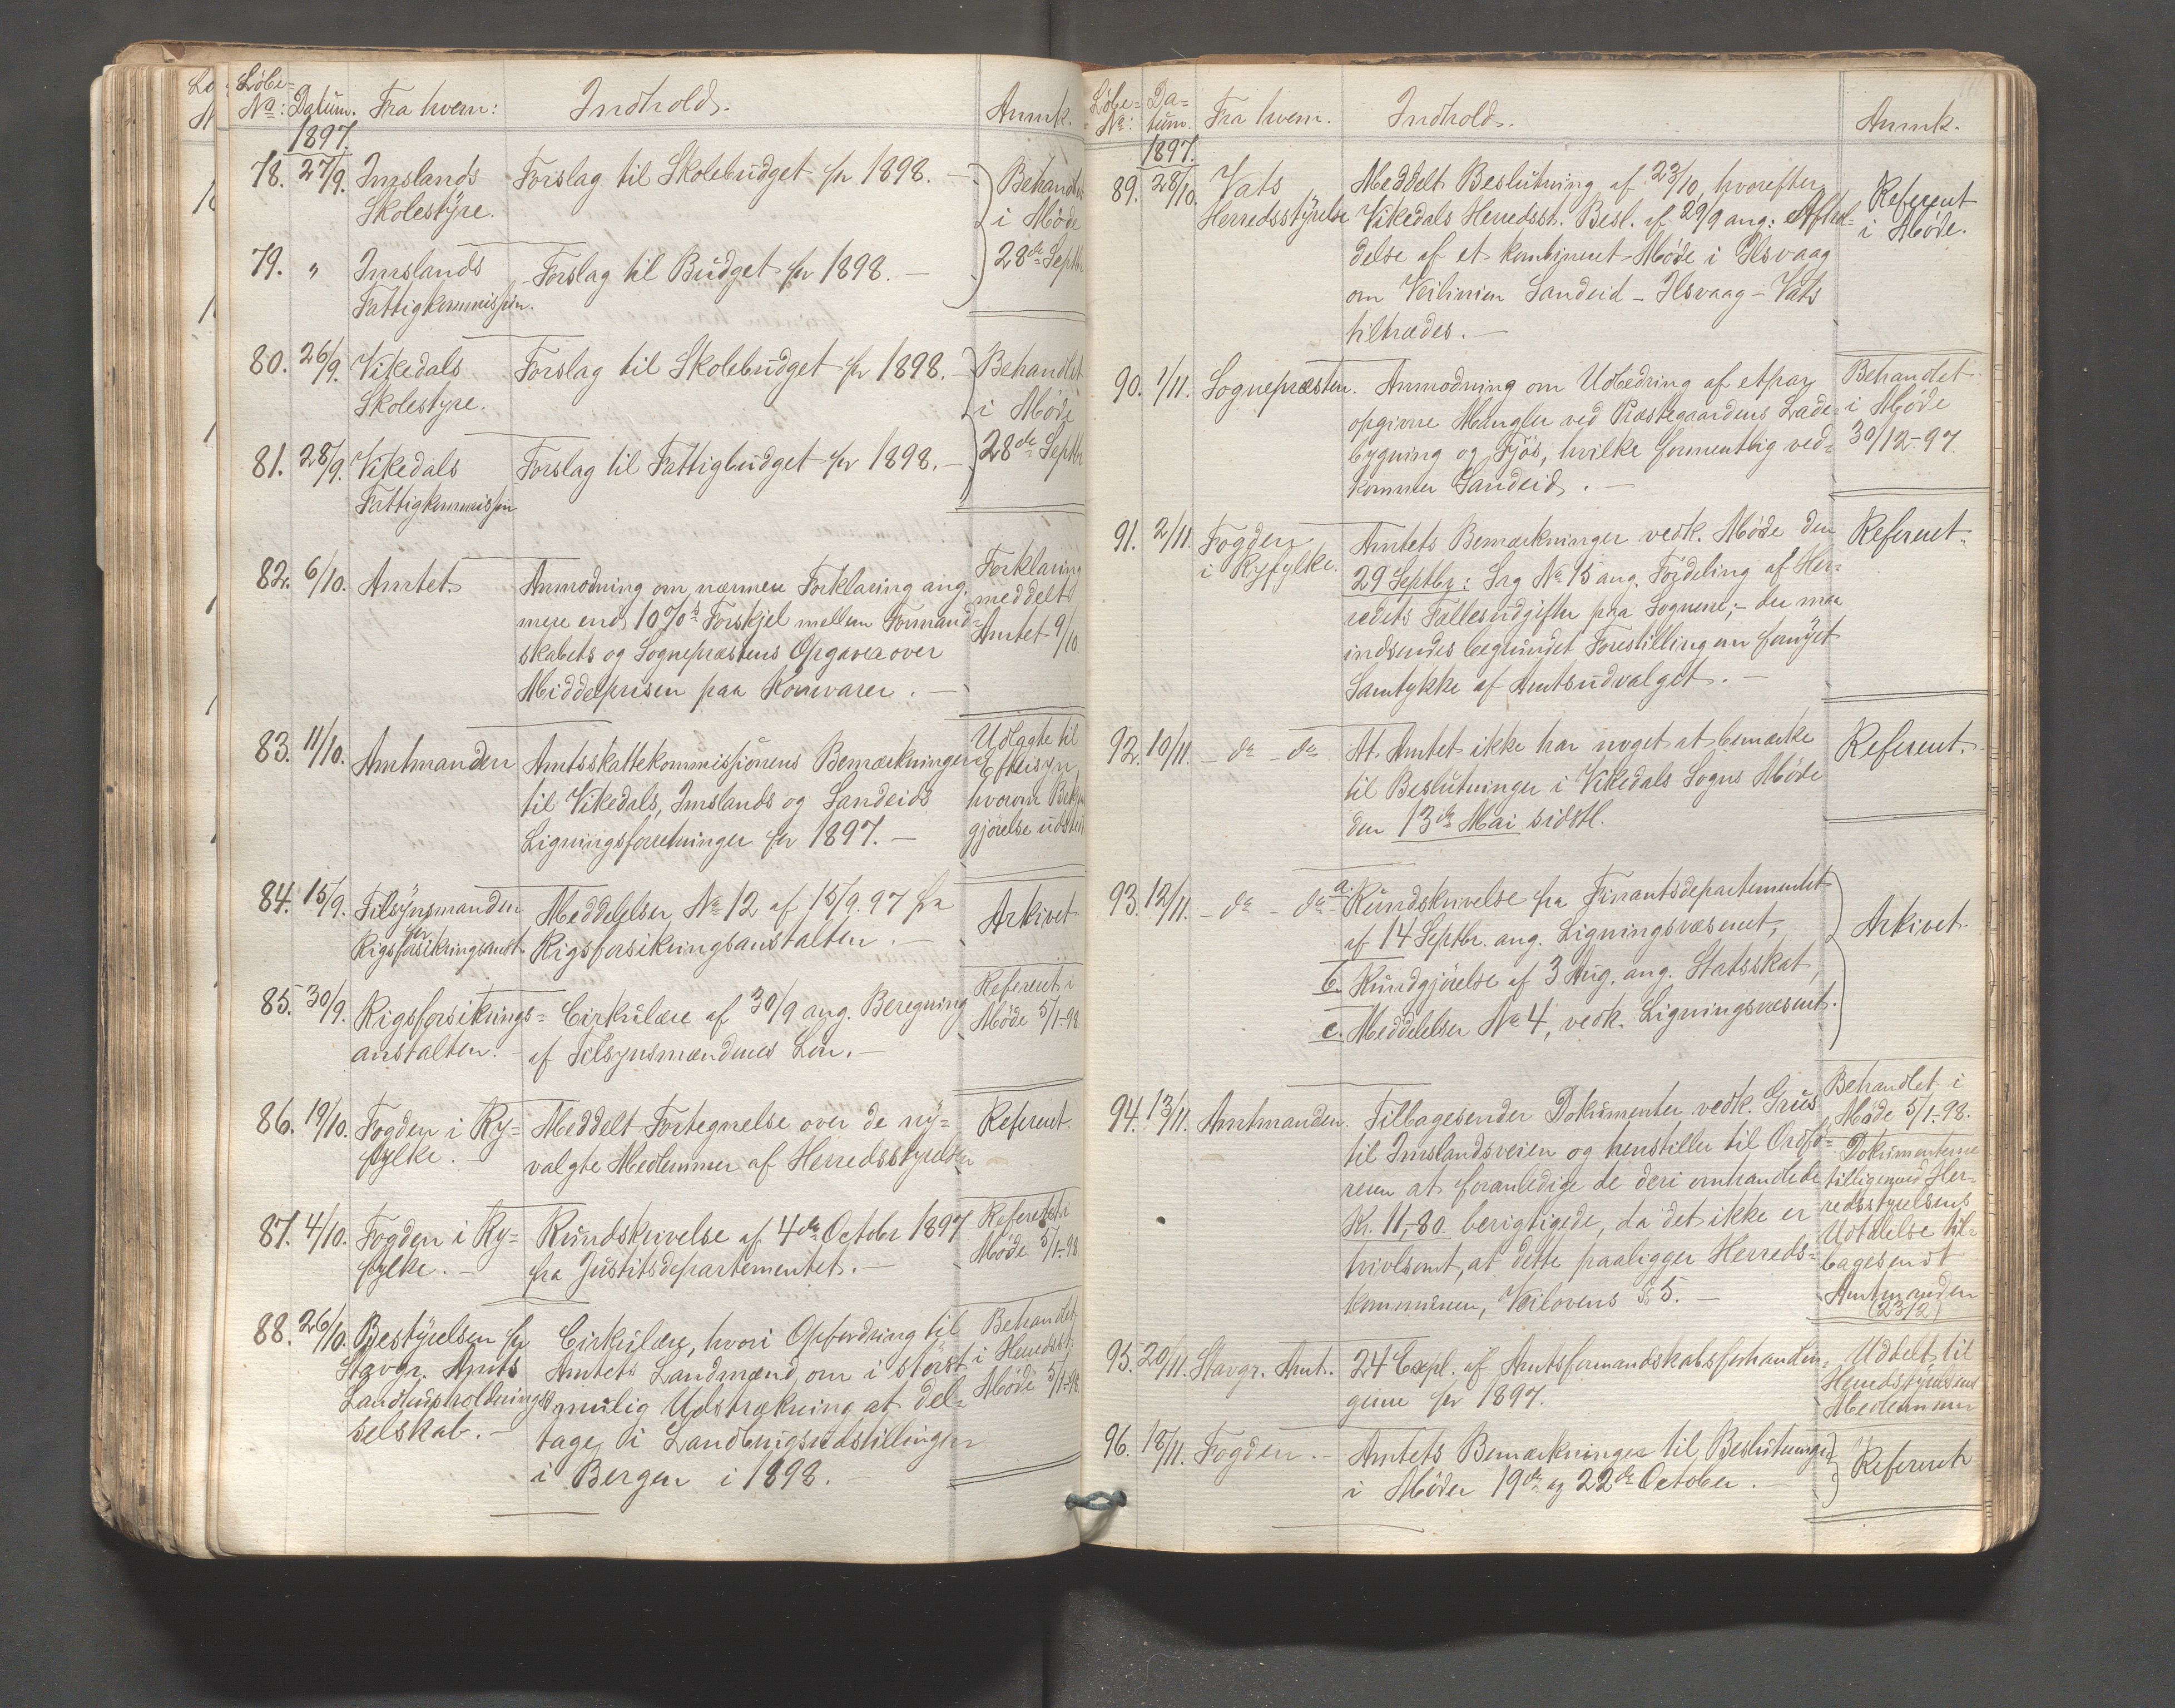 Löbe-
No: Datum. Fra hvem: Indhold. Anmk.
1897.
78. 27/9. Imslands Forslag til Skolebudget fr 1898. — Behandlet
Skolestyre. i Möde
79. " Imslands Forslag til Budget fr 1898. — 28de Septbr
Fattigkommission.
80. 26/9. Vikedals Forslag til Skolebudget fr 1898. — Behandlet
Skolestyre. i Möde
81. 28/9. Vikedals Forslag til Fattigbudget fr 1898. — 28de Septbr
Fattigkommission
82. 6/10. Amtet. Anmodning om nærmere Forklaring ang. Forklaring
mere end 10%s Forskjel mellem Formand- meddelt
skabets og Sognepræstens Opgaver over Amtet 9/10
Middelprisen paa Kornvarer. —
83. 11/10. Amtmanden Amtsskattekommissionens Bemærkninger Udlagte til
til Vikedals, Imslands og Sandeids Eftersyn
Ligningsforretninger fr 1897. — hvorom
gjørelse
84. 15/9. Tilsynsmanden Meddelelser No 12 af 15/9. 97 fra Arkivet
fr
Rigsforsikringsanst. Rigsforsikringsanstalten. —
85. 30/9. Rigsforsikrings- Cirkulære af 30/9 ang. Beregning Referent i
anstalten. — af Tilsynsmændenes Løn. — Möde 5/1-98
86. 19/10. Fogden i Ry- Meddelt Fortegnelse over de ny- Referent.
fylke. — valgte Medlemmer af Herredsstyrelsen
87. 4/10. Fogden i Ry- Rundskrivelse af 4de October 1897 Referent i
fylke. — fra Justitsdepartementet. — Möde 5/1-98
88. 26/10. Bestyrelsen for Cirkulære, hvori Opfordring til Behandlet
Stavgr. Amts Amtets Landmænd, om i störst i Herredsst.
Landhusholdnings- mulig Udstrækning at del- Möde 5/1-98
selskab. — tage i Landbrugsudstillingen
i Bergen i 1898.
Löbe- Da-
No: tum. Fra hvem. Indhold. Anmk.
1897.
89. 28/10. Vats Meddelt Beslutning af 23/10, hvorefter Referent
Herredsstyrelse Vikedals Herredsst. Besl. af 29/9 ang: Afhol- i Möde.
delse af et kombineret Möde i Ilsvaag
om Veilinien Sandeid - Ilsvaag - Vats
tiltrædes. —
90. 1/11. Sognepræsten. Anmodning om Udbedring af etpar Behandlet
opgivne Mangler ved Præstegaardens Lade- i Möde
bygning og Fjøs, hvilke formentlig ved- 30/12-97.
kommer Sandeid. —
91. 2/11. Fogden Amtets Bemærkninger vedk. Möde den Referent.
i Ryfylke. 29 Septbr: Sag No 15 ang. Fordeling af Her-
redets Fællesudgifter paa Sognene; - der maa
indsendes begrundet Forestilling om fornyet
Samtykke af Amtsudvalget. —
92. 10/11. — do — do At Amtet ikke har noget at bemærke Referent.
til Beslutninger i Vikedals Sogns Möde
den 13de Mai sidstl.
93. 12/11. — do — do a. Rundskrivelse fra Finantsdepartementet Arkivet.
af 14 Septbr. ang. Ligningsvæsenet,
b. Kundgjørelse af 3 Aug. ang. Statsskat,
c. Meddelelser No 4, vedk. Ligningsvæsenet.
94. 13/11. Amtmanden. Tilbagesender Dokumenter vedk. Grus Behandlet i
til Imslandsveien og henstiller til Ordfö- Möde 5/1-98.
reren at foranledige de deri omhandlede Dokumenterne
Kr. 11,-80 berigtigede, da det ikke er tilligemed Her-
tvivlsomt, at dette paaligger Herreds- redsstyrelsens
kommunen, Veilovens § 5. — Udtalelse til-
bagesendt
Amtmanden
(23/2)
95. 20/11. Stavgr. Amt. 24 Expl. af Amtsformandskabsforhandlin- Uddelt til
gerne fr 1897. Herredsstyrelsens
Medlemmer
96. 18/11. Fogden. — Amtets Bemærkninger til Beslutninger Referent
i Möder 19de og 22de October.